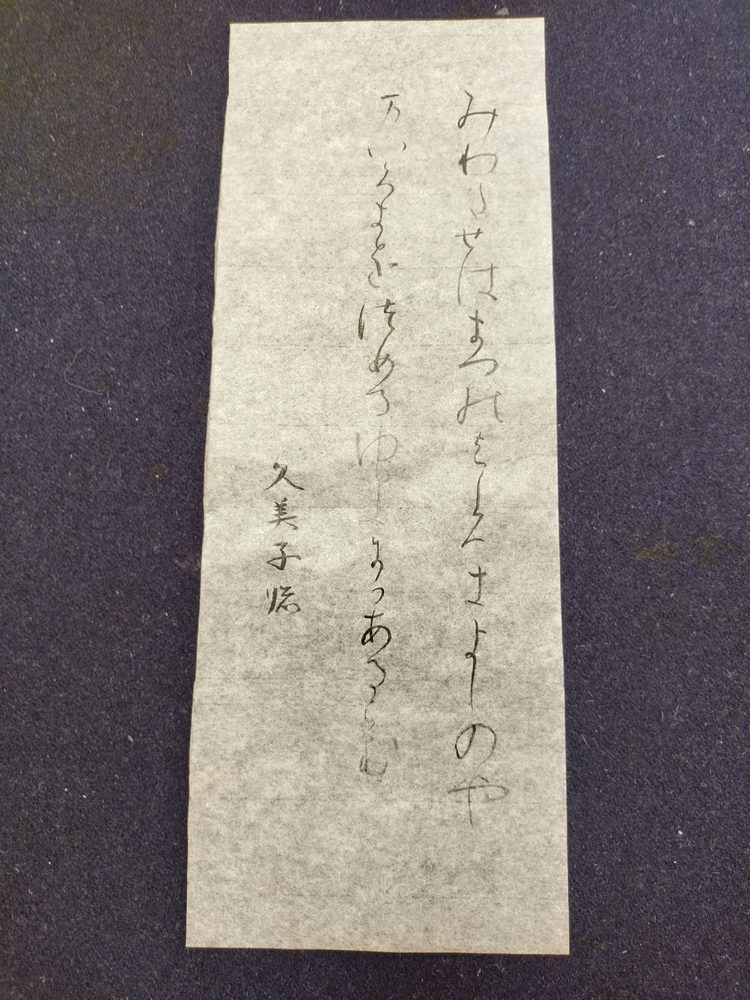 みわたせはまつのはしろきよしのや
万いくよを徒めるゆきにかあるらむ
久美子臨